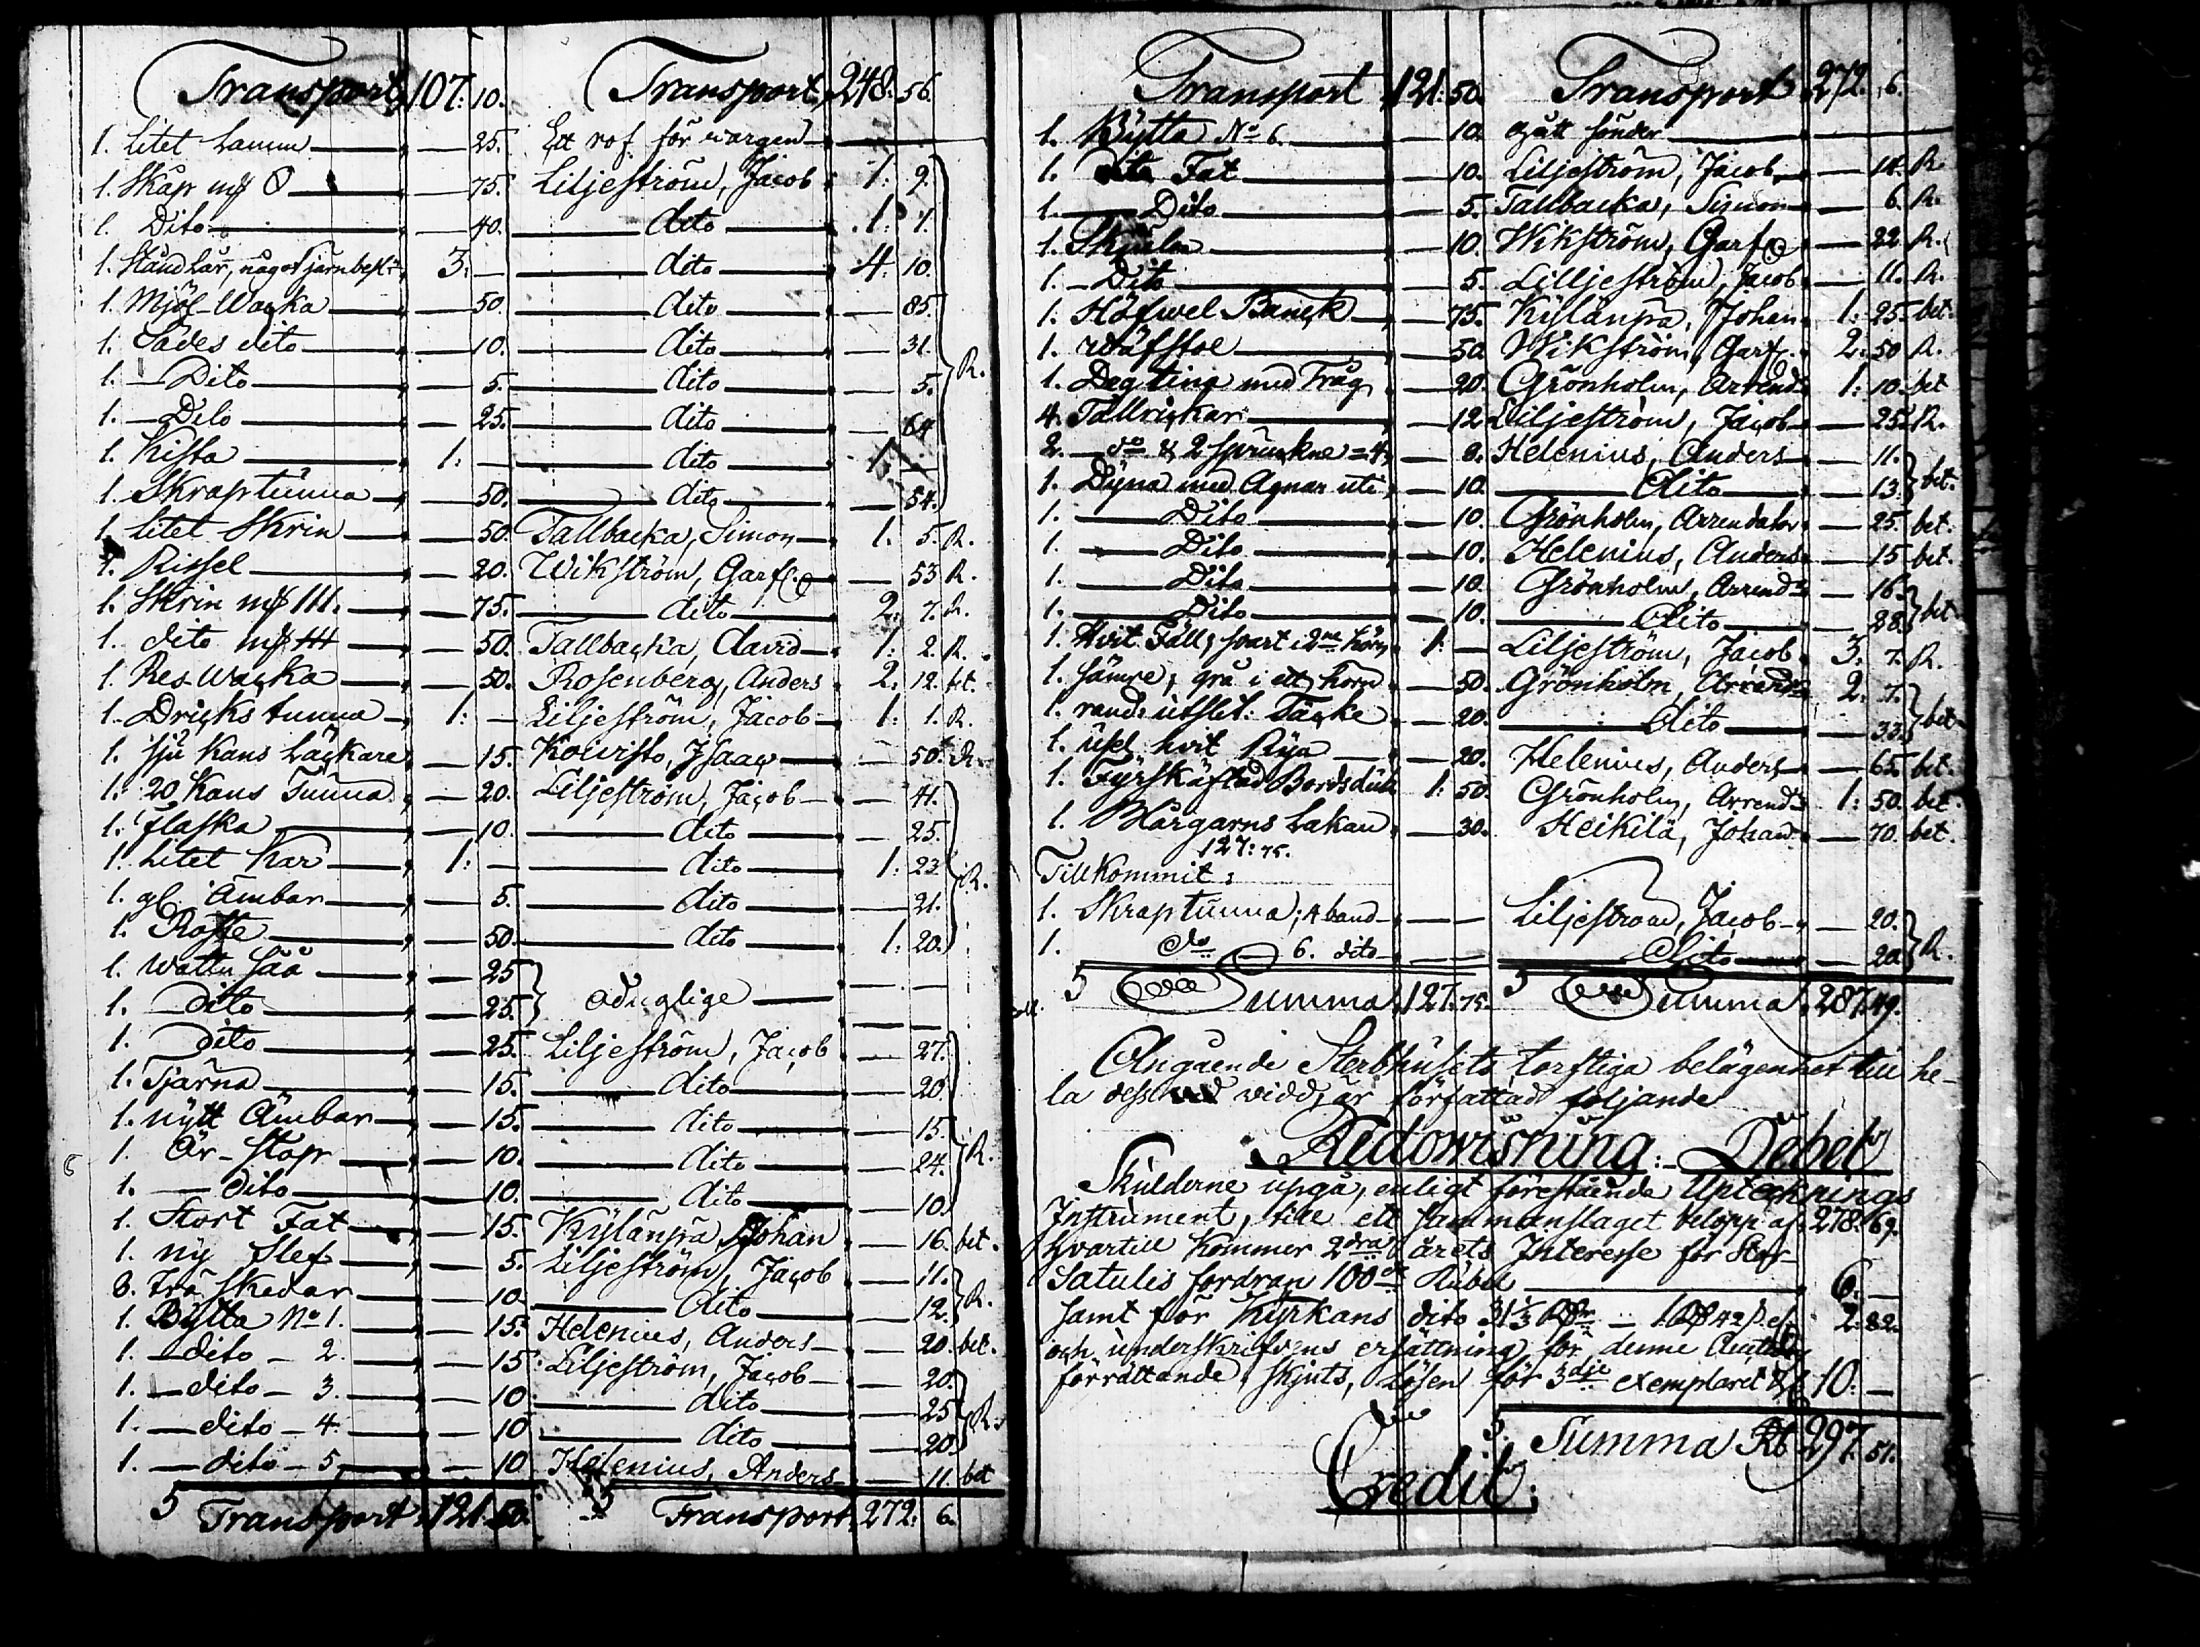 Transport 107: 10. Transport 248. 56.
1. Litet Lamm — 25. Ett rof för wargen —
1. Skåp mk O — 75. Liljeström, Jacob 1: 9.
1. Dito — 40. — dito — 1: 1.
1. Ståndkar, något järnbesl: 3: — dito — 4. 10.
1. Mjöl-Wacka — 50. — dito — 85.
1. Sädes dito — 10. — dito — 31.
1. — Dito — 5. — dito — 5. R.
1. — Dito — 25. — dito — 64
1. Kista 1: — dito —
1. Skraptunna — 50. — dito — 54.
1. Litet Skrin — 50. Tallbacka, Simon 1. 5. R.
1. Rissel — 20. Wikström, Garf. — 53 R.
1. Skrin mk III. — 75. — dito — 2. 7. R.
1. dito mk — 50. Tallbacka, David 1: 2. R.
1. Res-Wacka — 50. Rosenberg, Anders 2. 12. bt.
1. Dricks tunna 1: — Liljeström, Jacob 1: 1. R.
1. sju Kans Läckare — 15. Koivisto, Isaac — 50. R.
1. 20 Kans Tunna — 20. Liljeström, Jacob — 41.
1. Flaska — 10. — dito — 25.
1. Litet Kar 1: — dito — 1: 23. R.
1. gl. Ämbar — 5. — dito — 21.
1. — 50. — dito — 1: 20.
1. Wattu Såå — 25 odugelige —
1. Dito — 25.
1. Dito — 25. Liljeström, Jacob — 27.
1. Tjärna — 15. — dito — 20.
1. nytt Ämbar — 15. — dito — 15.
1. Är-Stop — 10. — dito — 24. R.
1. — dito — 10. — dito — 10.
1. Stort Fat — 15. Kylänpä, Johan — 16. bet.
1. ny Slef — 5. Liljeström, Jacob — 11.
8. Trä Skedar — 10. — dito — 12. R.
1. Bytta No 1. — 15. Helenius, Anders — 20. bet.
1. — dito — 2. — 15. Liljeström, Jacob — 20.
1. — dito — 3. — 10 — dito — 25 R.
1. — dito — 4. — 10 — dito — 20.
1. — dito — 5. — 10 Helenius, Anders — 11. bet
Transport 121. 50. Transport 272. 6.
Transport 121: 50. Transport 272. 6.
1. Bytta No 6. — 10. Gått sönder —
1. Fat — 10. Liljeström, Jacob — 14. R.
1. — Dito — 5. Tallbacka, Simon — 6. R.
1. — 10. Wikström, Garf. — 22. R.
1. — Dito — 5. Lilljeström, Jacob — 11. R.
1. Höfwel Banck — 75. Kylänpä, Johan 1: 25. bet.
1. Wäfstol — 50. Wikström, Garf. 2: 50 R.
1. Deg tina med Tråg — 20. Grönholm, Arrend: 1: 10. bet
4. Tallrickar — 12 Liljeström, Jacob — 25. R.
2. — do & 2 spruckne = 4 — 8. Helenius, Anders — 11.
1. Dyna med Agnar uti — 10. — dito — 13. bet.
1. — Dito — 10. Grönholm, Arrendator — 25. bet.
1. — Dito — 10. Helenius, Anders — 15 bet.
1. — Dito — 10. Grönholm, Arrend: — 16.
1. — Dito — 10. — dito — 28. bet.
1. Hvit Fäll, svart i 2ne hörn 1: — Liljeström, Jacob 3. 7. R.
1. Sämre, grå i ett hörn — 50. Grönholm, Arrend: 2. 7.
1. rand: utslit: Täcke — 20. — dito — 33. bet
1. usel hvit Rya — 20. Helenius, Anders — 65. bet.
1. Fyrskäftad Bordsduk 1: 50. Grönholm, Arrend: 1: 50. bet.
1. Blårgarns Lakan — 30. Heikilä, Johan — 70. bet.
127: 75.
Tillkommit:
1. Skraptunna; 4 band — Liljeström, Jacob — 20.
1. do — 6. dito — dito — 20. R.
Summa 127. 75. Summa 287. 49.
Angående Sterbhusets torftiga belägenhet till he-
la dess vidd, är författad följande
Redowisning: Debet
Skulderne upgå, enligt förestående Upteknings
Instrument, till ett sammanslaget belopp af 278. 69.
Hvartill kommer 2dra årets Interesse för Stor-
Satulis fordran 100 Rubel — 6. —
samt för Kyrkans dito 31 — 2. 82.
och underskrifvens ersättning för denne
förrättande, skjuts, Lösen för 3dje exemplaret 10. —
Summa Rb 297. 51.
Credit: